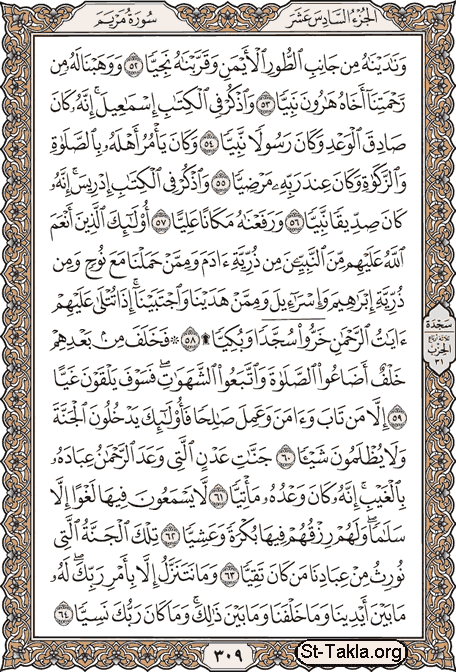 الجزء السادس عشر
سورة مريم
وَنَٰدَيْنَٰهُ مِن جَانِبِ ٱلطُّورِ ٱلْأَيْمَنِ وَقَرَّبْنَٰهُ نَجِيًّا ٥٢ وَوَهَبْنَا لَهُۥ مِن
رَّحْمَتِنَآ أَخَاهُ هَٰرُونَ نَبِيًّا ٥٣ وَٱذْكُرْ فِى ٱلْكِتَٰبِ إِسْمَٰعِيلَ ۚ إِنَّهُۥ كَانَ
صَادِقَ ٱلْوَعْدِ وَكَانَ رَسُولًا نَّبِيًّا ٥٤ وَكَانَ يَأْمُرُ أَهْلَهُۥ بِٱلصَّلَوٰةِ
وَٱلزَّكَوٰةِ وَكَانَ عِندَ رَبِّهِۦ مَرْضِيًّا ٥٥ وَٱذْكُرْ فِى ٱلْكِتَٰبِ إِدْرِيسَ ۚ إِنَّهُۥ
كَانَ صِدِّيقًا نَّبِيًّا ٥٦ وَرَفَعْنَٰهُ مَكَانًا عَلِيًّا ٥٧ أُو۟لَٰٓئِكَ ٱلَّذِينَ أَنْعَمَ
ٱللَّهُ عَلَيْهِم مِّنَ ٱلنَّبِيِّـۧنَ مِن ذُرِّيَّةِ ءَادَمَ وَمِمَّنْ حَمَلْنَا مَعَ نُوحٍ وَمِن
ذُرِّيَّةِ إِبْرَٰهِيمَ وَإِسْرَٰٓءِيلَ وَمِمَّنْ هَدَيْنَا وَٱجْتَبَيْنَآ ۚ إِذَا تُتْلَىٰ عَلَيْهِمْ
ءَايَٰتُ ٱلرَّحْمَٰنِ خَرُّوا۟ سُجَّدًا وَبُكِيًّا ۩ ٥٨ ۞ فَخَلَفَ مِنۢ بَعْدِهِمْ
خَلْفٌ أَضَاعُوا۟ ٱلصَّلَوٰةَ وَٱتَّبَعُوا۟ ٱلشَّهَوَٰتِ ۖ فَسَوْفَ يَلْقَوْنَ غَيًّا
٥٩ إِلَّا مَن تَابَ وَءَامَنَ وَعَمِلَ صَٰلِحًا فَأُو۟لَٰٓئِكَ يَدْخُلُونَ ٱلْجَنَّةَ
وَلَا يُظْلَمُونَ شَيْـًٔا ٦٠ جَنَّٰتِ عَدْنٍ ٱلَّتِى وَعَدَ ٱلرَّحْمَٰنُ عِبَادَهُۥ
بِٱلْغَيْبِ ۚ إِنَّهُۥ كَانَ وَعْدُهُۥ مَأْتِيًّا ٦١ لَّا يَسْمَعُونَ فِيهَا لَغْوًا إِلَّا
سَلَٰمًا ۖ وَلَهُمْ رِزْقُهُمْ فِيهَا بُكْرَةً وَعَشِيًّا ٦٢ تِلْكَ ٱلْجَنَّةُ ٱلَّتِى
نُورِثُ مِنْ عِبَادِنَا مَن كَانَ تَقِيًّا ٦٣ وَمَا نَتَنَزَّلُ إِلَّا بِأَمْرِ رَبِّكَ ۖ لَهُۥ
مَا بَيْنَ أَيْدِينَا وَمَا خَلْفَنَا وَمَا بَيْنَ ذَٰلِكَ ۚ وَمَا كَانَ رَبُّكَ نَسِيًّا ٦٤
سجدة
الحزب
٣١
٣٠٩
St-Takla.org